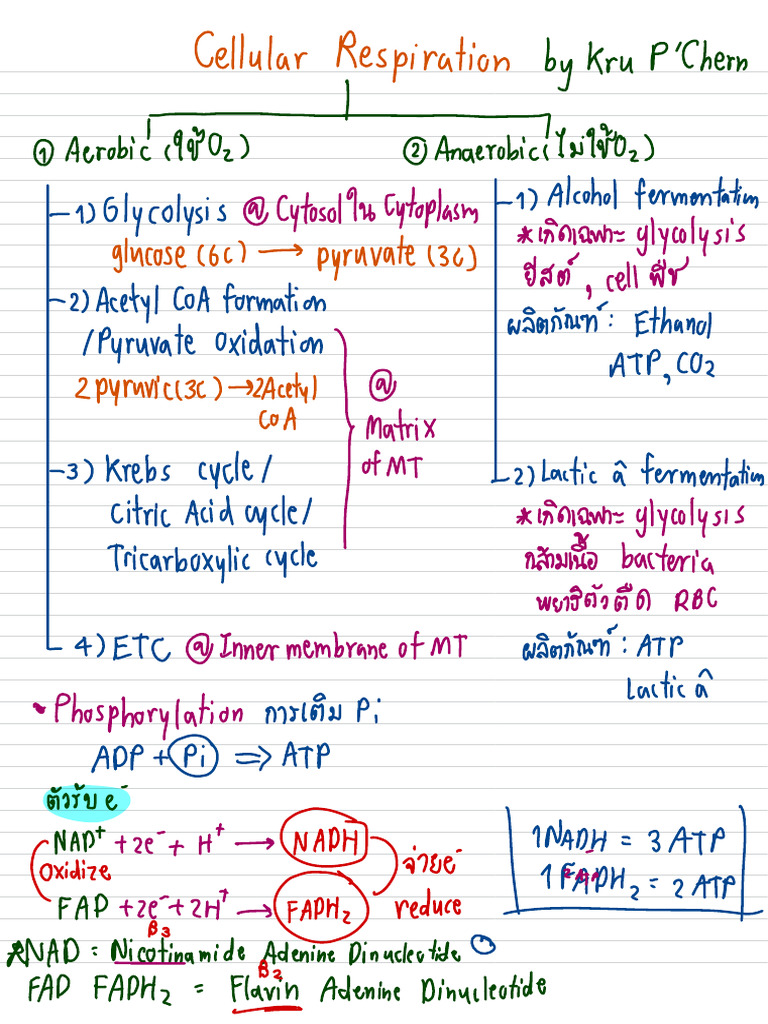 Cellular Respiration by Kru P'Chern
① Aerobic (ใช้O₂)
1) Glycolysis @ Cytosol ใน Cytoplasm
glucose (6c) → pyruvate (3c)
2) Acetyl CoA formation
/Pyruvate Oxidation
2 pyruvic(3c) → 2Acetyl
CoA
3) Krebs cycle /
Citric Acid cycle/
Tricarboxylic cycle
@
Matrix
of MT
4) ETC @ Inner membrane of MT
② Anaerobic (ไม่ใช้O₂)
1) Alcohol fermentation
*เกิดเฉพาะ glycolysis
ยีสต์, cell พืช
ผลิตภัณฑ์ : Ethanol
ATP, CO₂
2) Lactic â fermentation
*เกิดเฉพาะ glycolysis
กล้ามเนื้อ bacteria
พยาธิตัวตืด RBC
ผลิตภัณฑ์ : ATP
Lactic â
Phosphorylation การเติม Pi
ADP + Pi ⇒ ATP
ตัวรับ e⁻
NAD⁺ + 2e⁻ + H⁺ → NADH
Oxidize
FAD + 2e⁻ + 2H⁺ → FADH₂
จ่าย e⁻
reduce
1NADH = 3 ATP
1 FADH₂ = 2 ATP
B₃
*NAD = Nicotinamide Adenine Dinucleotide
B₂
FAD FADH₂ = Flavin Adenine Dinucleotide